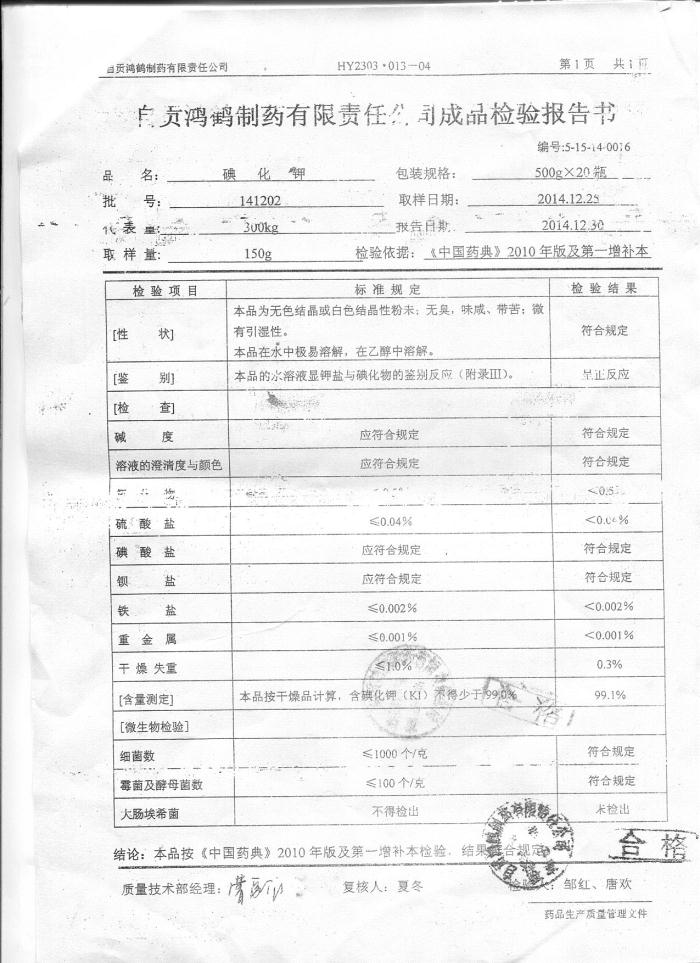 自贡鸿鹤制药有限责任公司 HY2303·013-04 第1页 共1页
自贡鸿鹤制药有限责任公司成品检验报告书
编号:5-15-14-0016
品 名: 碘 化 钾 包装规格: 500g×20瓶
批 号: 141202 取样日期: 2014.12.25
代 表 量: 300kg 报告日期: 2014.12.30
取 样 量: 150g 检验依据: 《中国药典》2010年版及第一增补本
检验项目 标准规定 检验结果
[性 状] 本品为无色结晶或白色结晶性粉末；无臭，味咸、带苦；微有引湿性。
本品在水中极易溶解，在乙醇中溶解。 符合规定
[鉴 别] 本品的水溶液显钾盐与碘化物的鉴别反应（附录III）。 呈正反应
[检 查]
碱 度 应符合规定 符合规定
溶液的澄清度与颜色 应符合规定 符合规定
化 物 <0.5
硫 酸 盐 ≤0.04% <0.04%
碘 酸 盐 应符合规定 符合规定
钡 盐 应符合规定 符合规定
铁 盐 ≤0.002% <0.002%
重 金 属 ≤0.001% <0.001%
干 燥 失重 ≤1.0% 0.3%
[含量测定] 本品按干燥品计算，含碘化钾（KI）不得少于99.0% 99.1%
[微生物检验]
细菌数 ≤1000个/克 符合规定
霉菌及酵母菌数 ≤100个/克 符合规定
大肠埃希菌 不得检出 未检出
合格
结论：本品按《中国药典》2010年版及第一增补本检验，结果符合规定
质量技术部经理: 复核人：夏冬 检验人：邹红、唐欢
药品生产质量管理文件